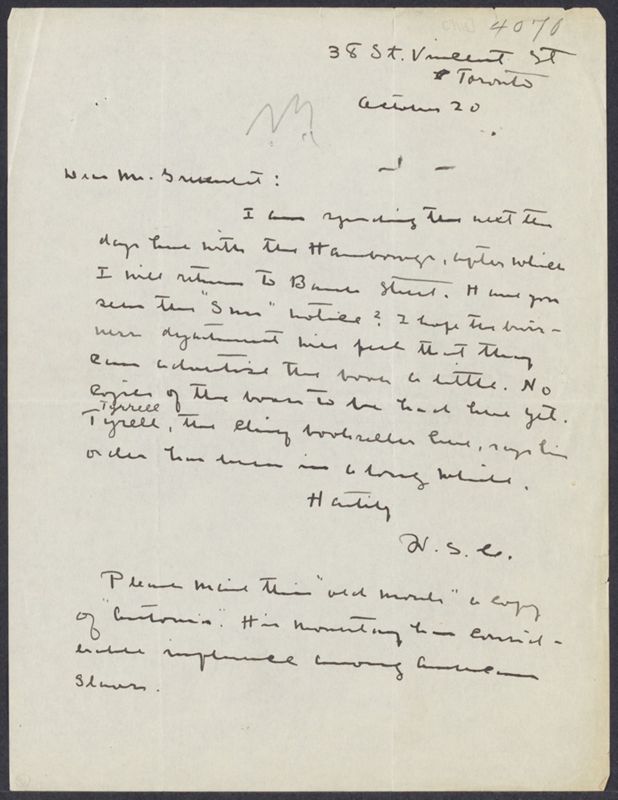 4070
38 St. Vincent St
Toronto
October 20
Dear Mr. Greenslet:
I am spending the next ten
days here with the Hambourgs, after which
I will return to Bank Street. Have you
seen the "Sun" notice? I hope the busi-
ness department will feel that they
can advertise the book a little. No
copies of the book to be had here yet.
Tyrrell
Tyrell, the chief bookseller here, says his
order has been in a long while.
Hastily
W. S. C.
Please mail this "old monk" a copy
of "Antonia". His monastery has consid-
erable influence among American
Slavs.